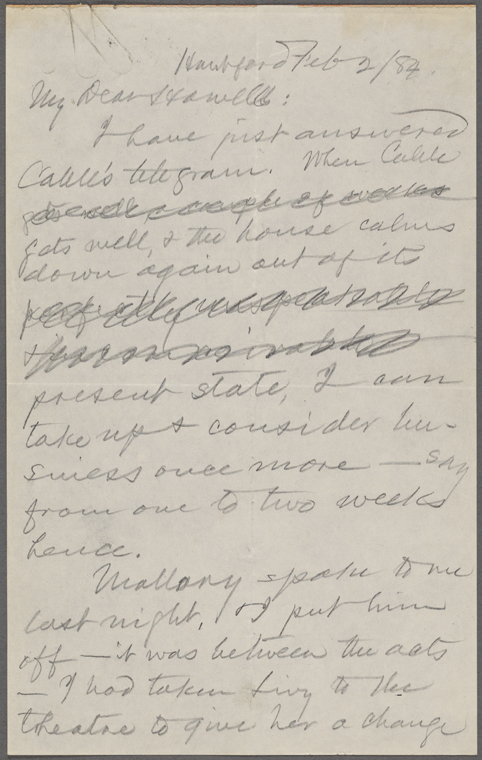 Hartford Feb 2/84.
My Dear Howells:
I have just answered
Cable's telegram. When Cable
gets well, & the house calms
down again out of its
present state, I can
take up & consider bu-
siness once more — say
from one to two weeks
hence.
Mallory spoke to me
last night, & I put him
off — it was between the acts
— I had taken Livy to the
theatre to give her a change